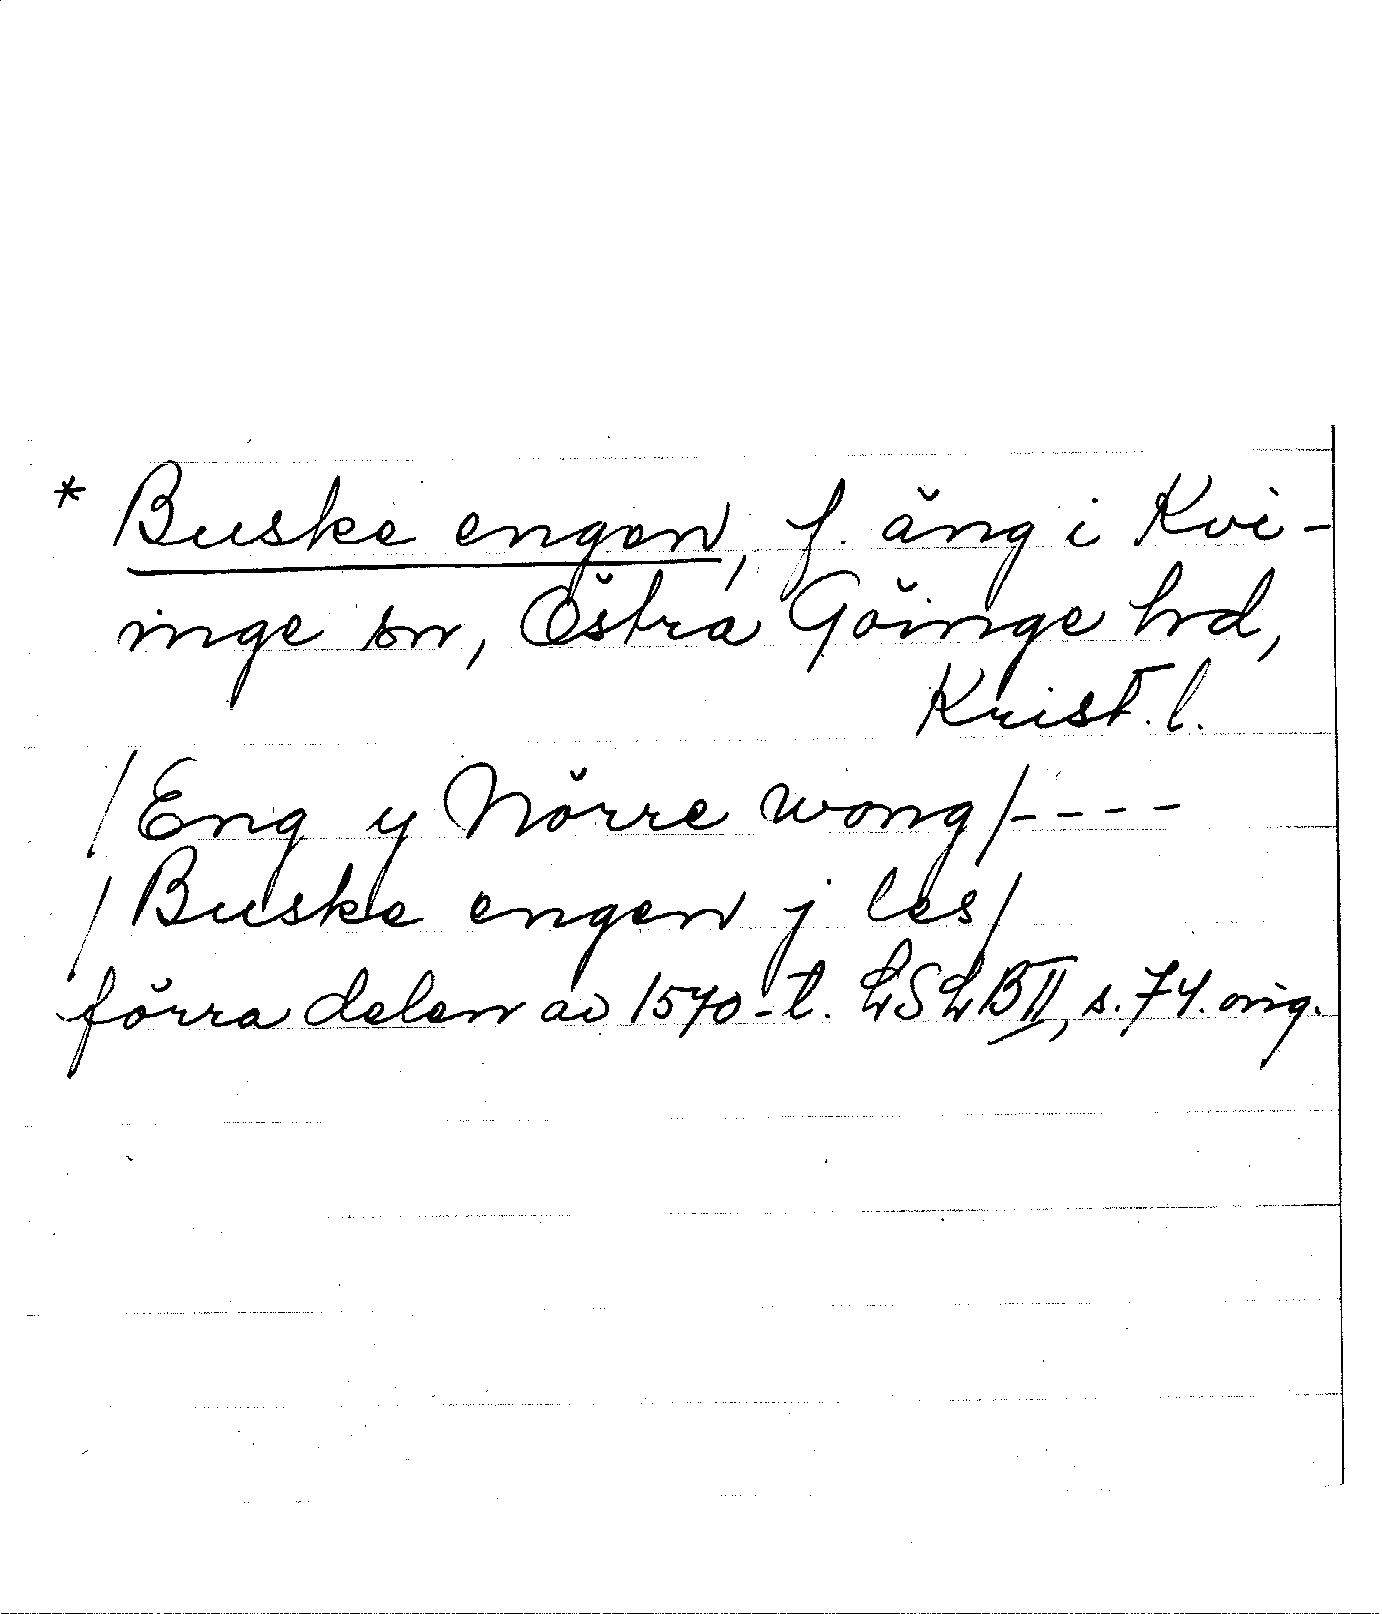 * Buske engen, f. äng i Kvi-
inge sn, Östra Göinge hd,
Krist. l.
/Eng y Nörre wong/----
/Buske engen j les/
förra delen av 1570-t. LSLB II, s. 74. orig.